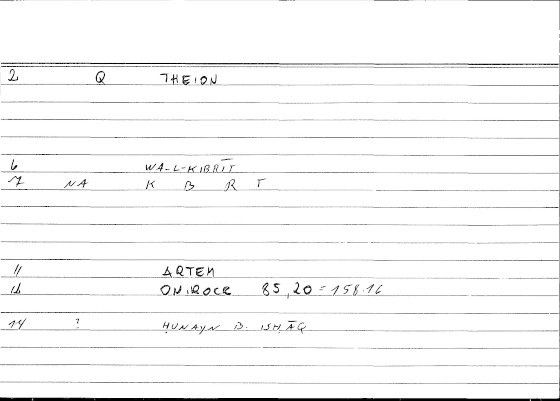 2 Q THEION
6 WA-L-KIBRĪT
7 NA K B R T
11 ARTEM
12 ONIROCR 85,20 = 158.16
14 ? ḤUNAYN B. ISḤĀQ